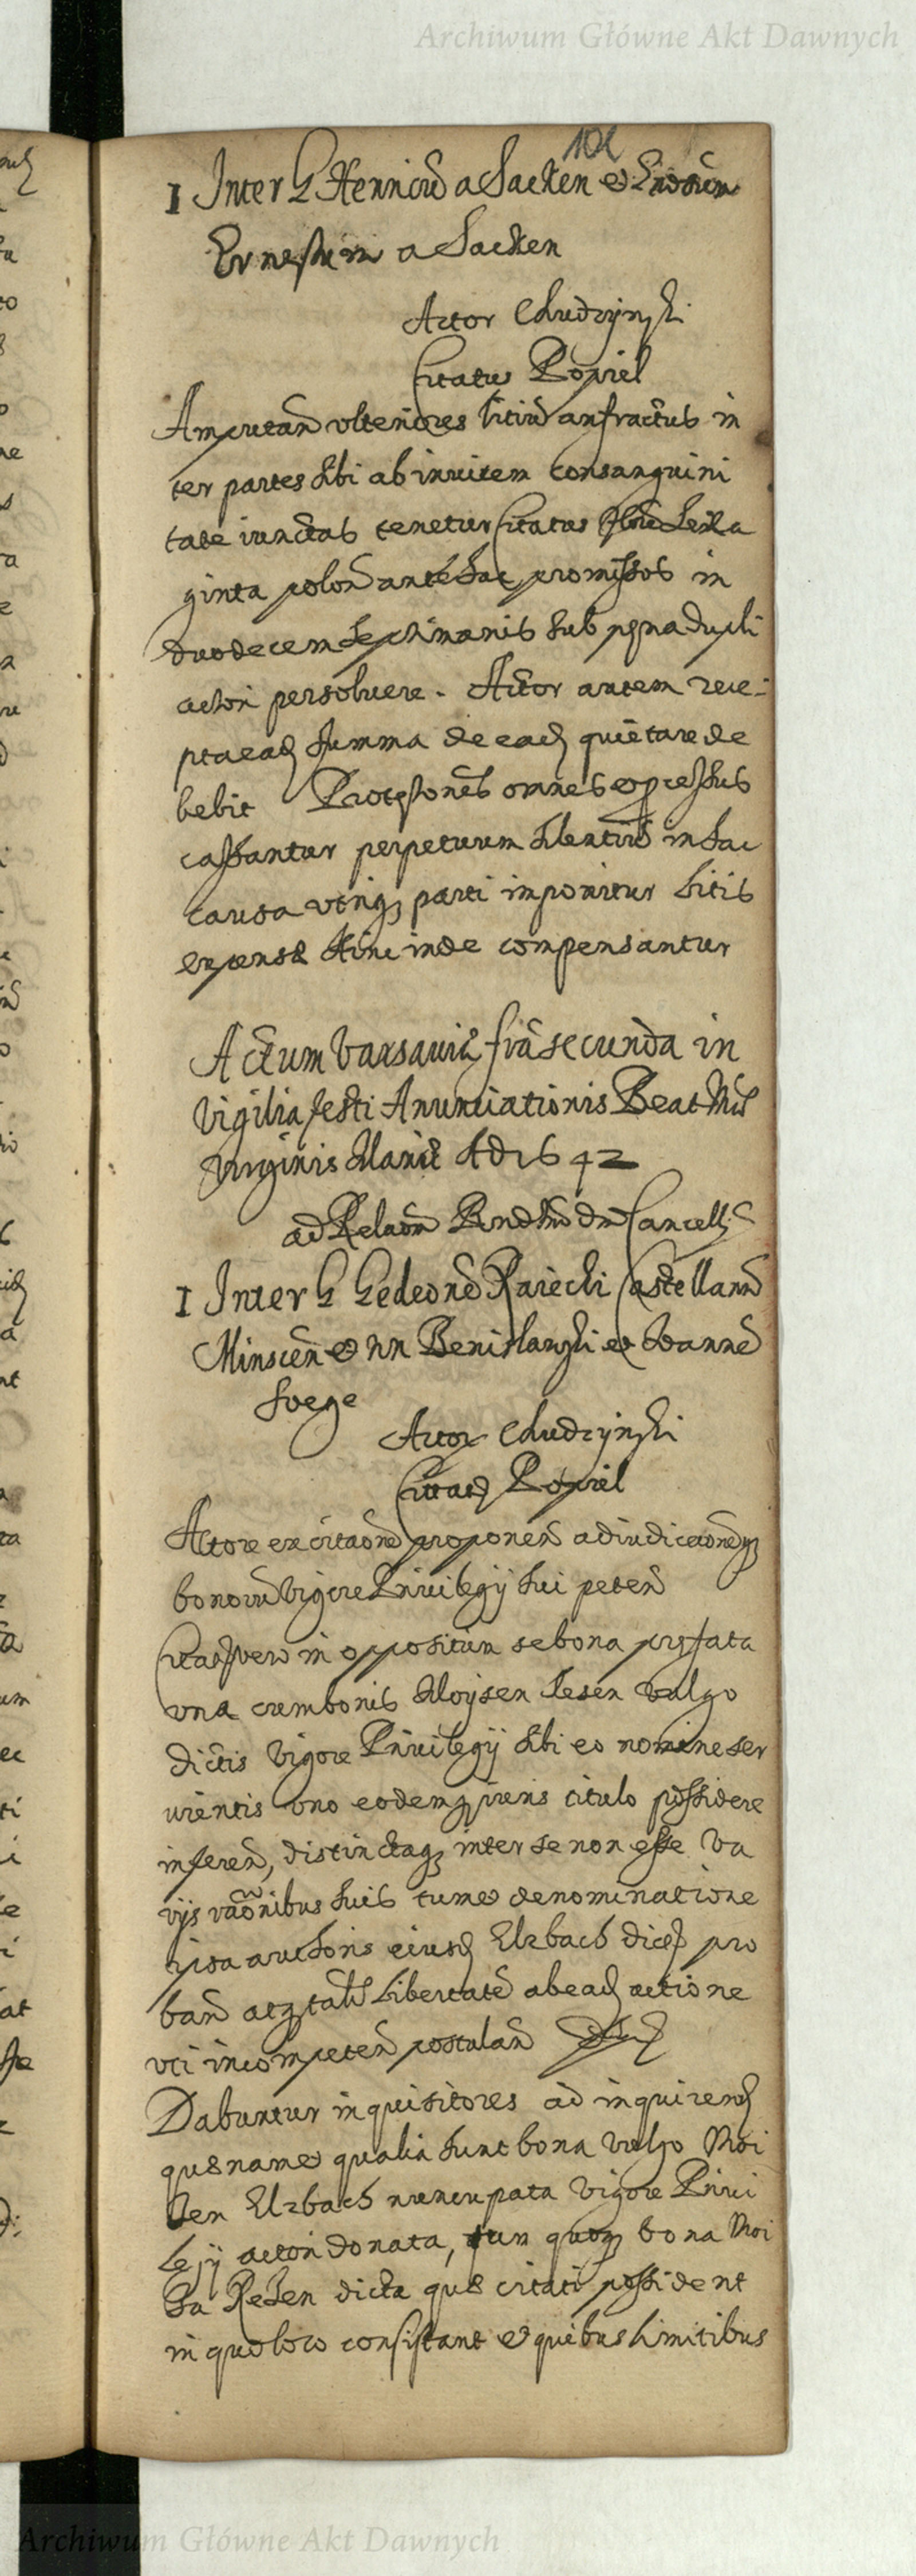 Archiwum Główne Akt Dawnych
101
1 Inter G Henricũ a Sacken et
Ernestum a Sacken
Actor Chudzynski
Citatus Popiel
Amputan ulteriores litiũ anfractus in
ter partes sibi ab invicem consanguini
tate iunctas tenetur Citatus flor Sexa
ginta polon antehac promissos in
duodecem septimanis sub pęna dupli
actori persolvere. Actor autem rece-
pta ead summa de ead quietare de
bebit Protestones omnes et pcessus
cassantur perpetuum silentiũ in hac
causa utriq parti imponitur Litis
expensæ hinc inde compensantur
Actum Varsaviæ friã secunda in
Vigilia festi Anuntiationis Beatmæ
Virginis Mariæ AD 1642
ad Relaon Rendmi dni Cancellr
1 Inter G Gedeonẽ Raiecki Castellanũ
Minscen et NN Benislawski et Ioannẽ
Foege
Actor Chudzynski
Citatq Popiel
Actore ex citaõne proponen adiudicaonemq
bonorũ vigore Privilegij sui peten
Citatq vero in oppositum se bona pręfata
una cum bonis Moysen Resen vulgo
dictis vigore Privilegij sibi eo nomine ser
vientis uno eodemq iuris titulo possidere
inferen, distinctaq inter se non esse va
rijs raõnibus suis tum et denominatione
ipsa authoris eiusd Elzbach dicti pro
ban atq tali Libertatẽ ab ead actione
uti incompeten postulan
Dabuntur inquisitores ad inquirend
quænam et qualia sunt bona vulgo Moi
sen Elzbach nuncupata vigore Privi
legij actori donata, tum quoq bona Moi
sa Resen dicta quæ citati possident
in quo loco consistant et quibus limitibus
Archiwum Główne Akt Dawnych